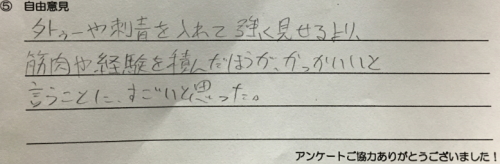 ⑤ 自由意見
タトゥーや刺青を入れて強く見せるより、
筋肉や経験を積んだほうが、かっかいいと
言うことに、すごいと思った。
アンケートご協力ありがとうございました！